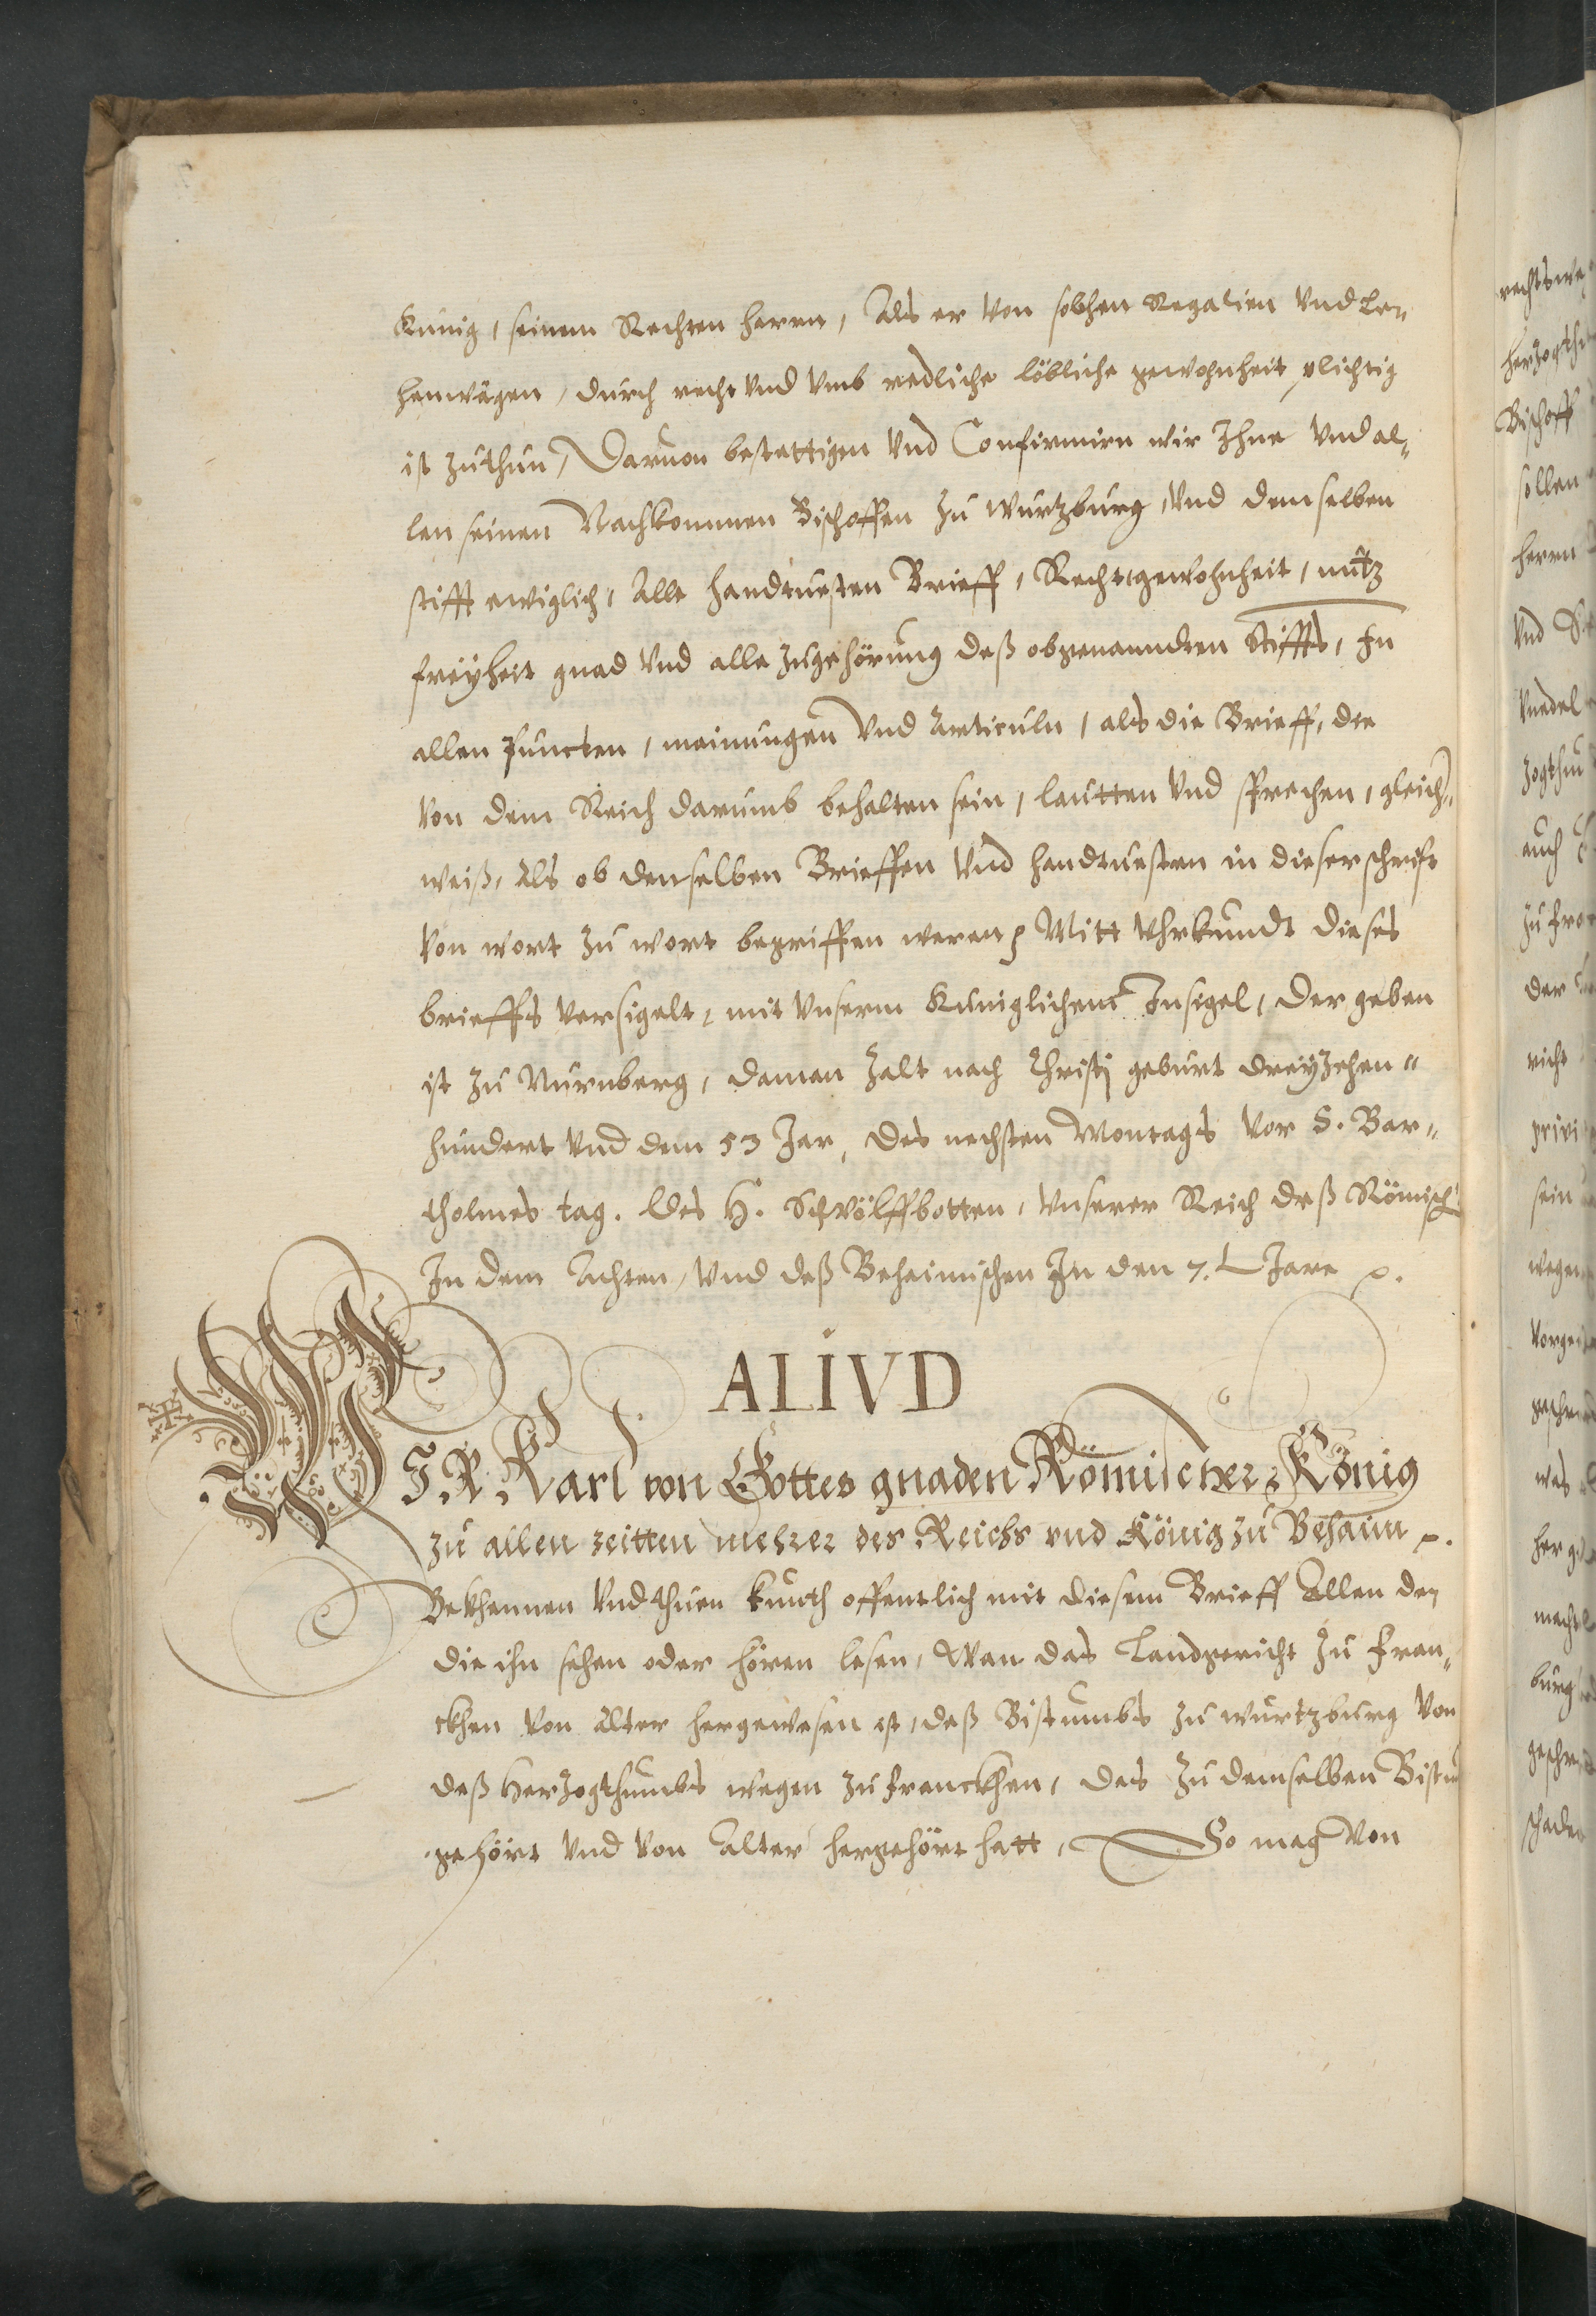 Kunig, seinem Rechten herrn, Als er von solchen Regalien vnd Le-
henwägen, durch recht vnd vmb redliche löbliche gewohnheit plichtig
ist zuthun, Daruon bestettigen vnd Confirmirn wir Ihne vnd al-
len seinen Nachkommen Bischoffen zu Wurtzburg, vnd demselben
stifft ewiglich, Alle handtuesten Brieff, Recht gewohnheit, nutz
freyheit gnad vnd alle zugehörung deß obgenanndten Stiffts, In
allen puncten, meinungen vnd Articuln, als die Brieff, die
von dem Reich darumb behalten sein, lautten vnd sprechen, gleich-
weiß, Als ob denselben Brieffen vnd handtuesten in dieser schrifft
von wort zu wort begriffen weren Mitt vhrkundt dieses
brieffs versigelt, mit vnserm Kuniglichem Insigel, Der geben
ist zu Nurnberg, daman zalt nach Christj geburt dreyzehen-
hundert vnd dem 53 Jar, des nechsten Montags vor S. Bar-
tholmes tag. des H. Schwölffbotten, vnserer Reich deß Römisch
In dem Achten, vnd deß Beheimischen In den 7. Jare
ALIVD
WIR Karl von Gottes gnaden Römischer König
zu allen zeitten mehrer des Reichs vnd König zu Behaim
Bekhennen vnd thuen kunth offentlich mit diesem Brieff Allen den
die ihn sehen oder hören lesen, Wan das Landgericht zu Fran-
ckhen von Alter hergewesen ist, deß Bistumbs zu wurtzburg von
deß Hertzogthumbs wegen zu Franckhen, das zu demselben Bistum
gehört vnd von Alter hergehört hatt, So mag von